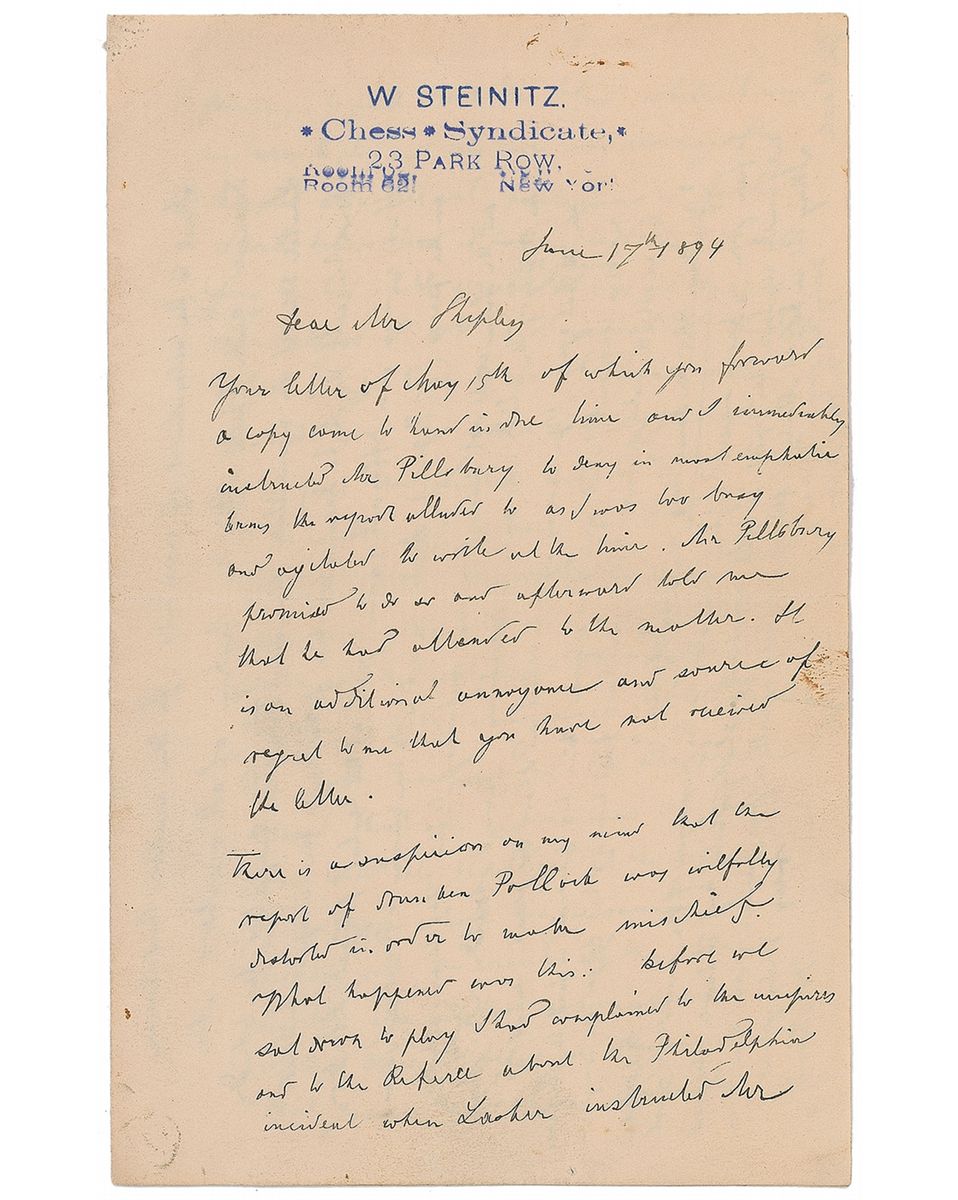 W STEINITZ.
* Chess * Syndicate, *
23 PARK ROW.
Room 62 New York
June 17th 1894
Dear Mr Shipley
Your letter of May 15th of which you forward
a copy came to hand in due time and I immediately
instructed Mr Pillsbury to deny in most emphatic
terms the report alluded to as I was too busy
and agitated to write at the time. Mr Pillsbury
promised to do so and afterward told me
that he had attended to the matter. It
is an additional annoyance and source of
regret to me that you have not received
the letter.
There is a suspicion on my mind that the
report of drunken Pollock was wilfully
distorted in order to make mischief.
What happened was this: Before we
sat down to play I had complained to the umpires
and to the Referee about the Philadelphia
incident when Lasker instructed Mr